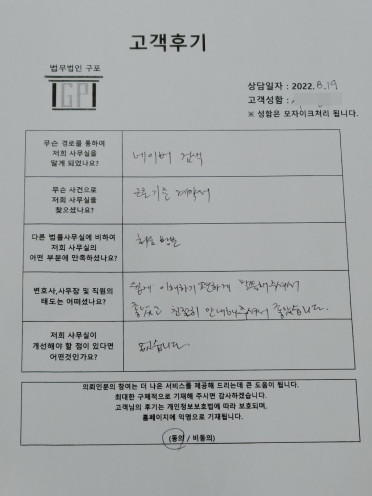 고객후기
법무법인 구포
GP
상담일자 : 2022. 8. 19
고객성함 :
※ 성함은 모자이크처리 됩니다.
무슨 경로를 통하여
저희 사무실을
알게 되었나요?
네이버 검색
무슨 사건으로
저희 사무실을
찾으셨나요?
근로기준 계약서
다른 법률사무실에 비하여
저희 사무실의
어떤 부분에 만족하셨나요?
변호사,사무장 및 직원의
태도는 어떠셨나요?
쉽게 이해하기 편하게 말씀해주셔서
좋았고 친절히 안내해주셔서 좋았습니다.
저희 사무실이
개선해야 할 점이 있다면
어떤것인가요?
없습니다.
의뢰인분의 참여는 더 나은 서비스를 제공해 드리는데 큰 도움이 됩니다.
최대한 구체적으로 기재해 주시면 감사하겠습니다.
고객님의 후기는 개인정보보호법에 따라 보호되며,
홈페이지에 익명으로 기재됩니다.
(동의 / 비동의)